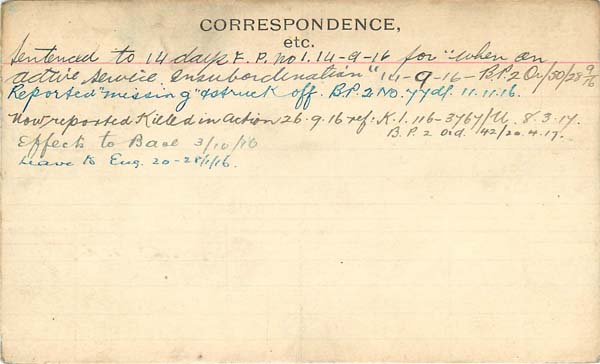 CORRESPONDENCE,
etc.
Sentenced to 14 days F. P. no 1. 14-9-16 for "when on
active service Insubordination" 14-9-16- B.P.2 O./30/28 9/16
Reported "missing" & struck off. B.P. 2 No. 77 dl. 11.11.16.
Now reported Killed in Action 26.9.16 ref: K.1. 116-3767/U. 8.3.17.
B.P. 2 Oid. 42/20.4.17.
Effects to Base 3/10/16
Leave to Eng. 20-28/1/16.